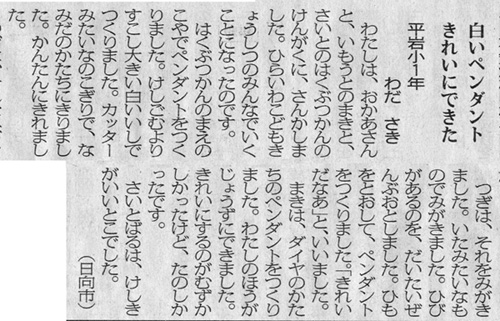 白いペンダント
きれいにできた
平岩小1年
わだ　さき
わたしは、おかあさん
と、いもうとのまきと、
さいとのはくぶつかんの
けんがくに、さんかしま
した。ひらいわこどもき
ょうしつのみんなでいく
ことになったのです。
はくぶつかんのまえの
こやでペンダントをつく
りました。けしごむより
すこし大きい白いいしで
つくりました。カッター
みたいなのこぎりで、な
みだのかたちにきりまし
た。かんたんにきれまし
た。
つぎは、それをみがき
ました。いたみたいなも
のでみがきました。ひび
があるのを、だいたいぜ
んぶおとしました。ひも
をとおして、ペンダント
をつくりました。「きれい
だなあ」と、いいました。
まきは、ダイヤのかた
ちのペンダントをつくり
ました。わたしのほうが
じょうずにできました。
きれいにするのがむずか
しかったけど、たのしか
ったです。
さいとばるは、けしき
がいいとこでした。
（日向市）